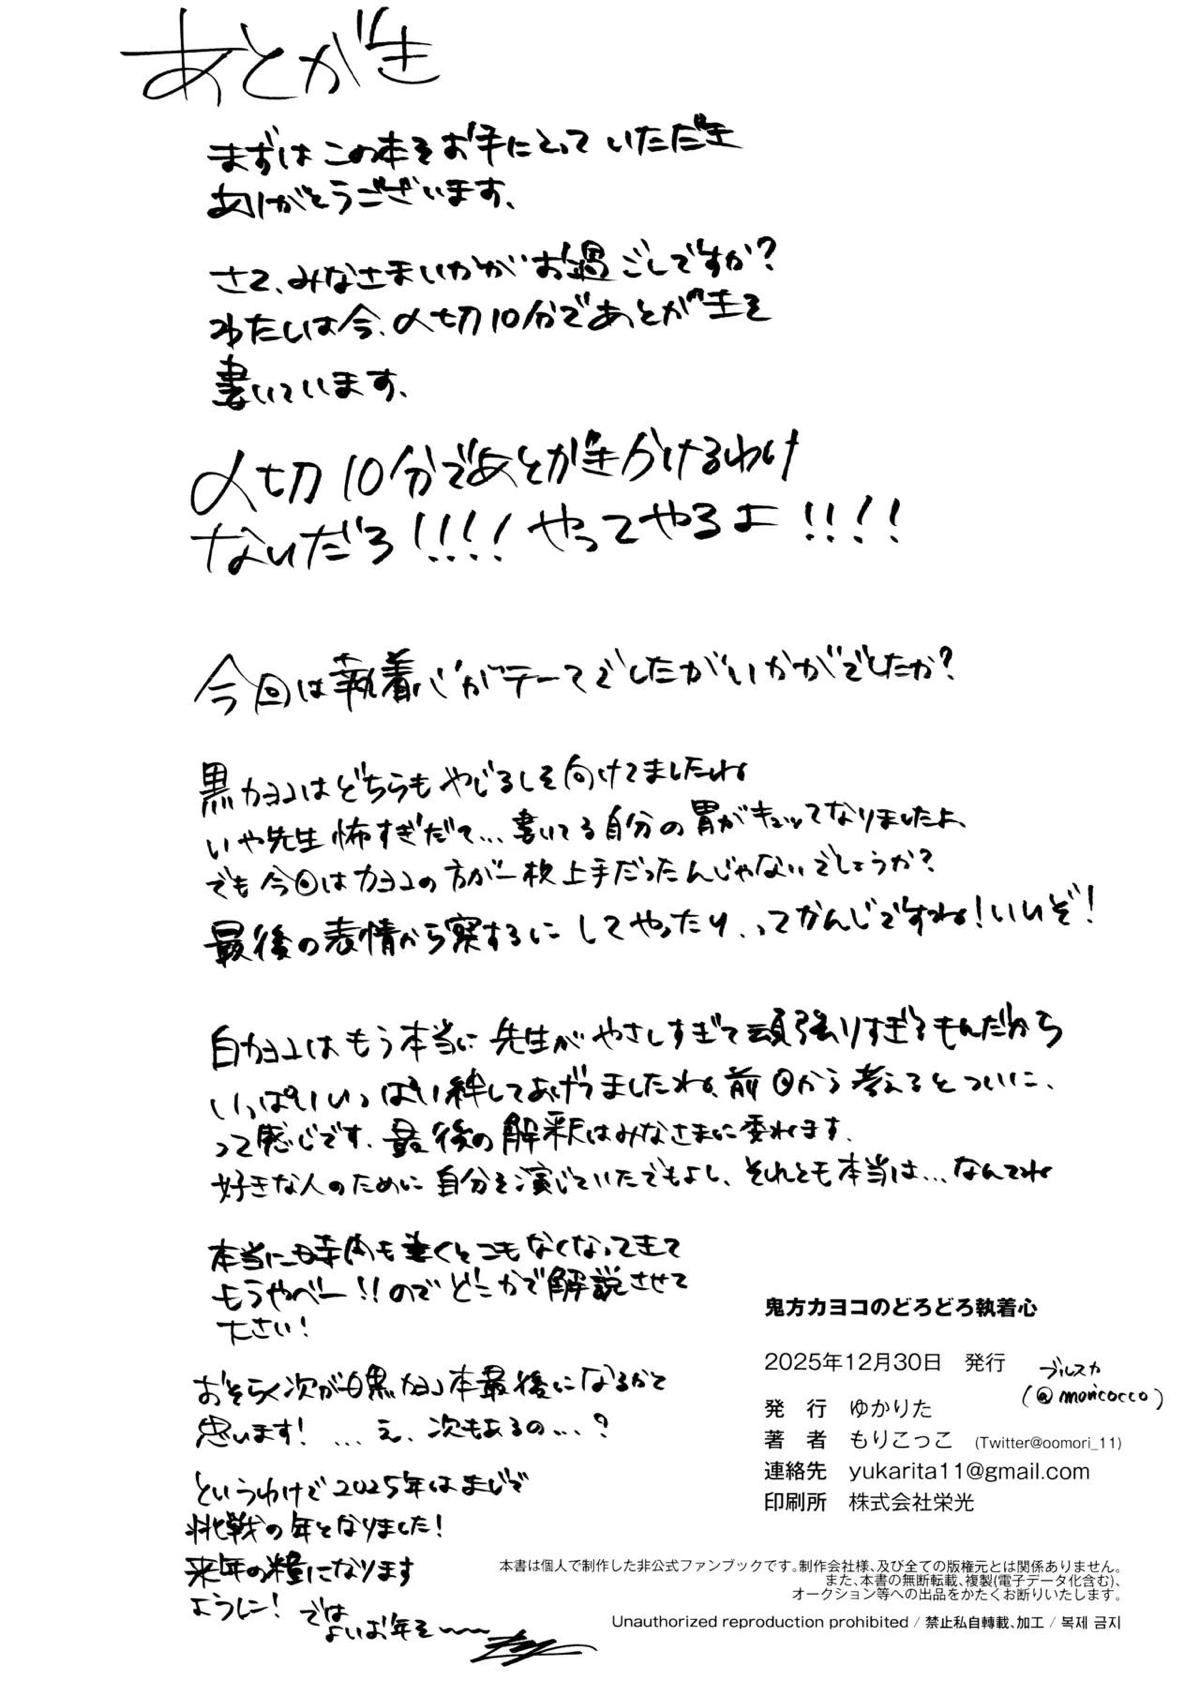 あとがき
まずはこの本をお手にとっていただき
ありがとうございます、
さて、みなさまいかがお過ごしですか？
わたしは今、〆切10分であとがきを
書いています、
〆切10分であとがきかけるわけ
ないだろ!!!!やってやるよ!!!!
今回は執着心がテーマでしたがいかがでしたか？
黒カヨコはどちらもやじるしを向けてましたね
いや先生怖すぎだて…書いてる自分の胃がキュッてなりましたよ、
でも今回はカヨコの方が一枚上手だったんじゃないでしょうか？
最後の表情から察するに してやったり、ってかんじですね！いいぞ！
白カヨコはもう本当に先生がやさしすぎて頑張りすぎるもんだから
いっぱいいっぱい絆してあげうましたね、前回から考えるとついに、
って感じです、最後の解釈はみなさまに委ねます、
好きな人のために自分を演じていたでもよし、それとも本当は…なんてね
本当に時間も書くとこもなくなってきて
もうやべー!!のでどこかで解説させて
下さい！
おそらく次が白黒カヨコ本最後になるかと
思います！…え、次もあるの…？
というわけで2025年はまじで
挑戦の年となりました！
来年の糧になります
ように！では
よいお年を〜〜
鬼方カヨコのどろどろ執着心
2025年12月30日　発行
ブルスカ
(@moricocco)
発　行　ゆかりた
著　者　もりこっこ　(Twitter@oomori_11)
連絡先　yukarita11@gmail.com
印刷所　株式会社栄光
本書は個人で制作した非公式ファンブックです。制作会社様、及び全ての版権元とは関係ありません。
また、本書の無断転載、複製(電子データ化含む)、
オークション等への出品をかたくお断りいたします。
Unauthorized reproduction prohibited / 禁止私自轉載、加工 / 복제 금지